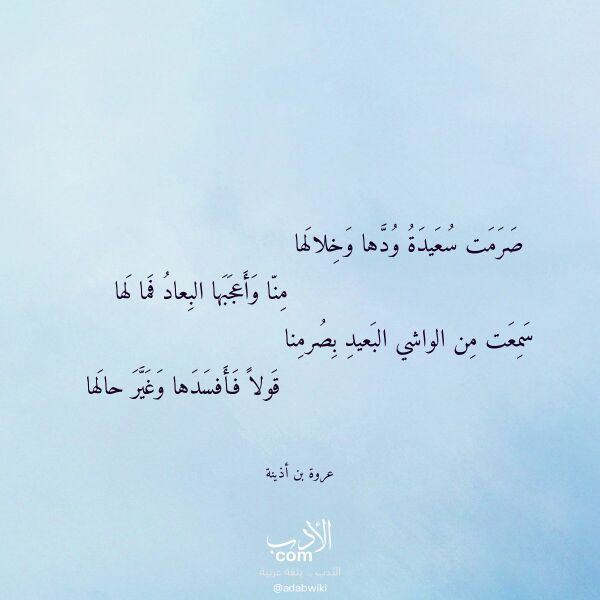 صَرَمَت سُعَيدَةُ وُدَّها وَخِلالَها
مِنّا وَأَعجَبَها البِعادُ فَما لَها
سَمِعَت مِن الواشي البَعيدِ بِصُرمِنا
قَولاً فَأَفسَدَها وَغَيَّرَ حالَها
عروة بن أذينة
الأدب
com
الأدب .. بلغة عربية
@adabwiki